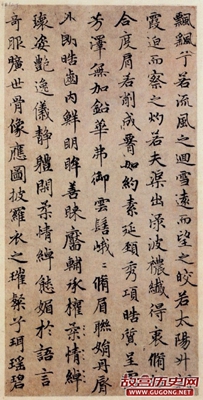 飄飖兮若流風之迴雪遠而望之皎若太陽升
霞迫而察之灼若夫渠出淥波穠纖得衷脩
合度肩若削成腰如約素延頸秀項皓質呈露
芳澤無加鉛華弗御雲髻峩峩脩眉聯娟丹脣
外朗皓齒内鮮明眸善睞靨輔承權柔情綽
瓌姿艷逸儀靜體閑柔情綽態媚於語言
奇服曠世骨像應圖披羅衣之璀粲兮珥瑤碧